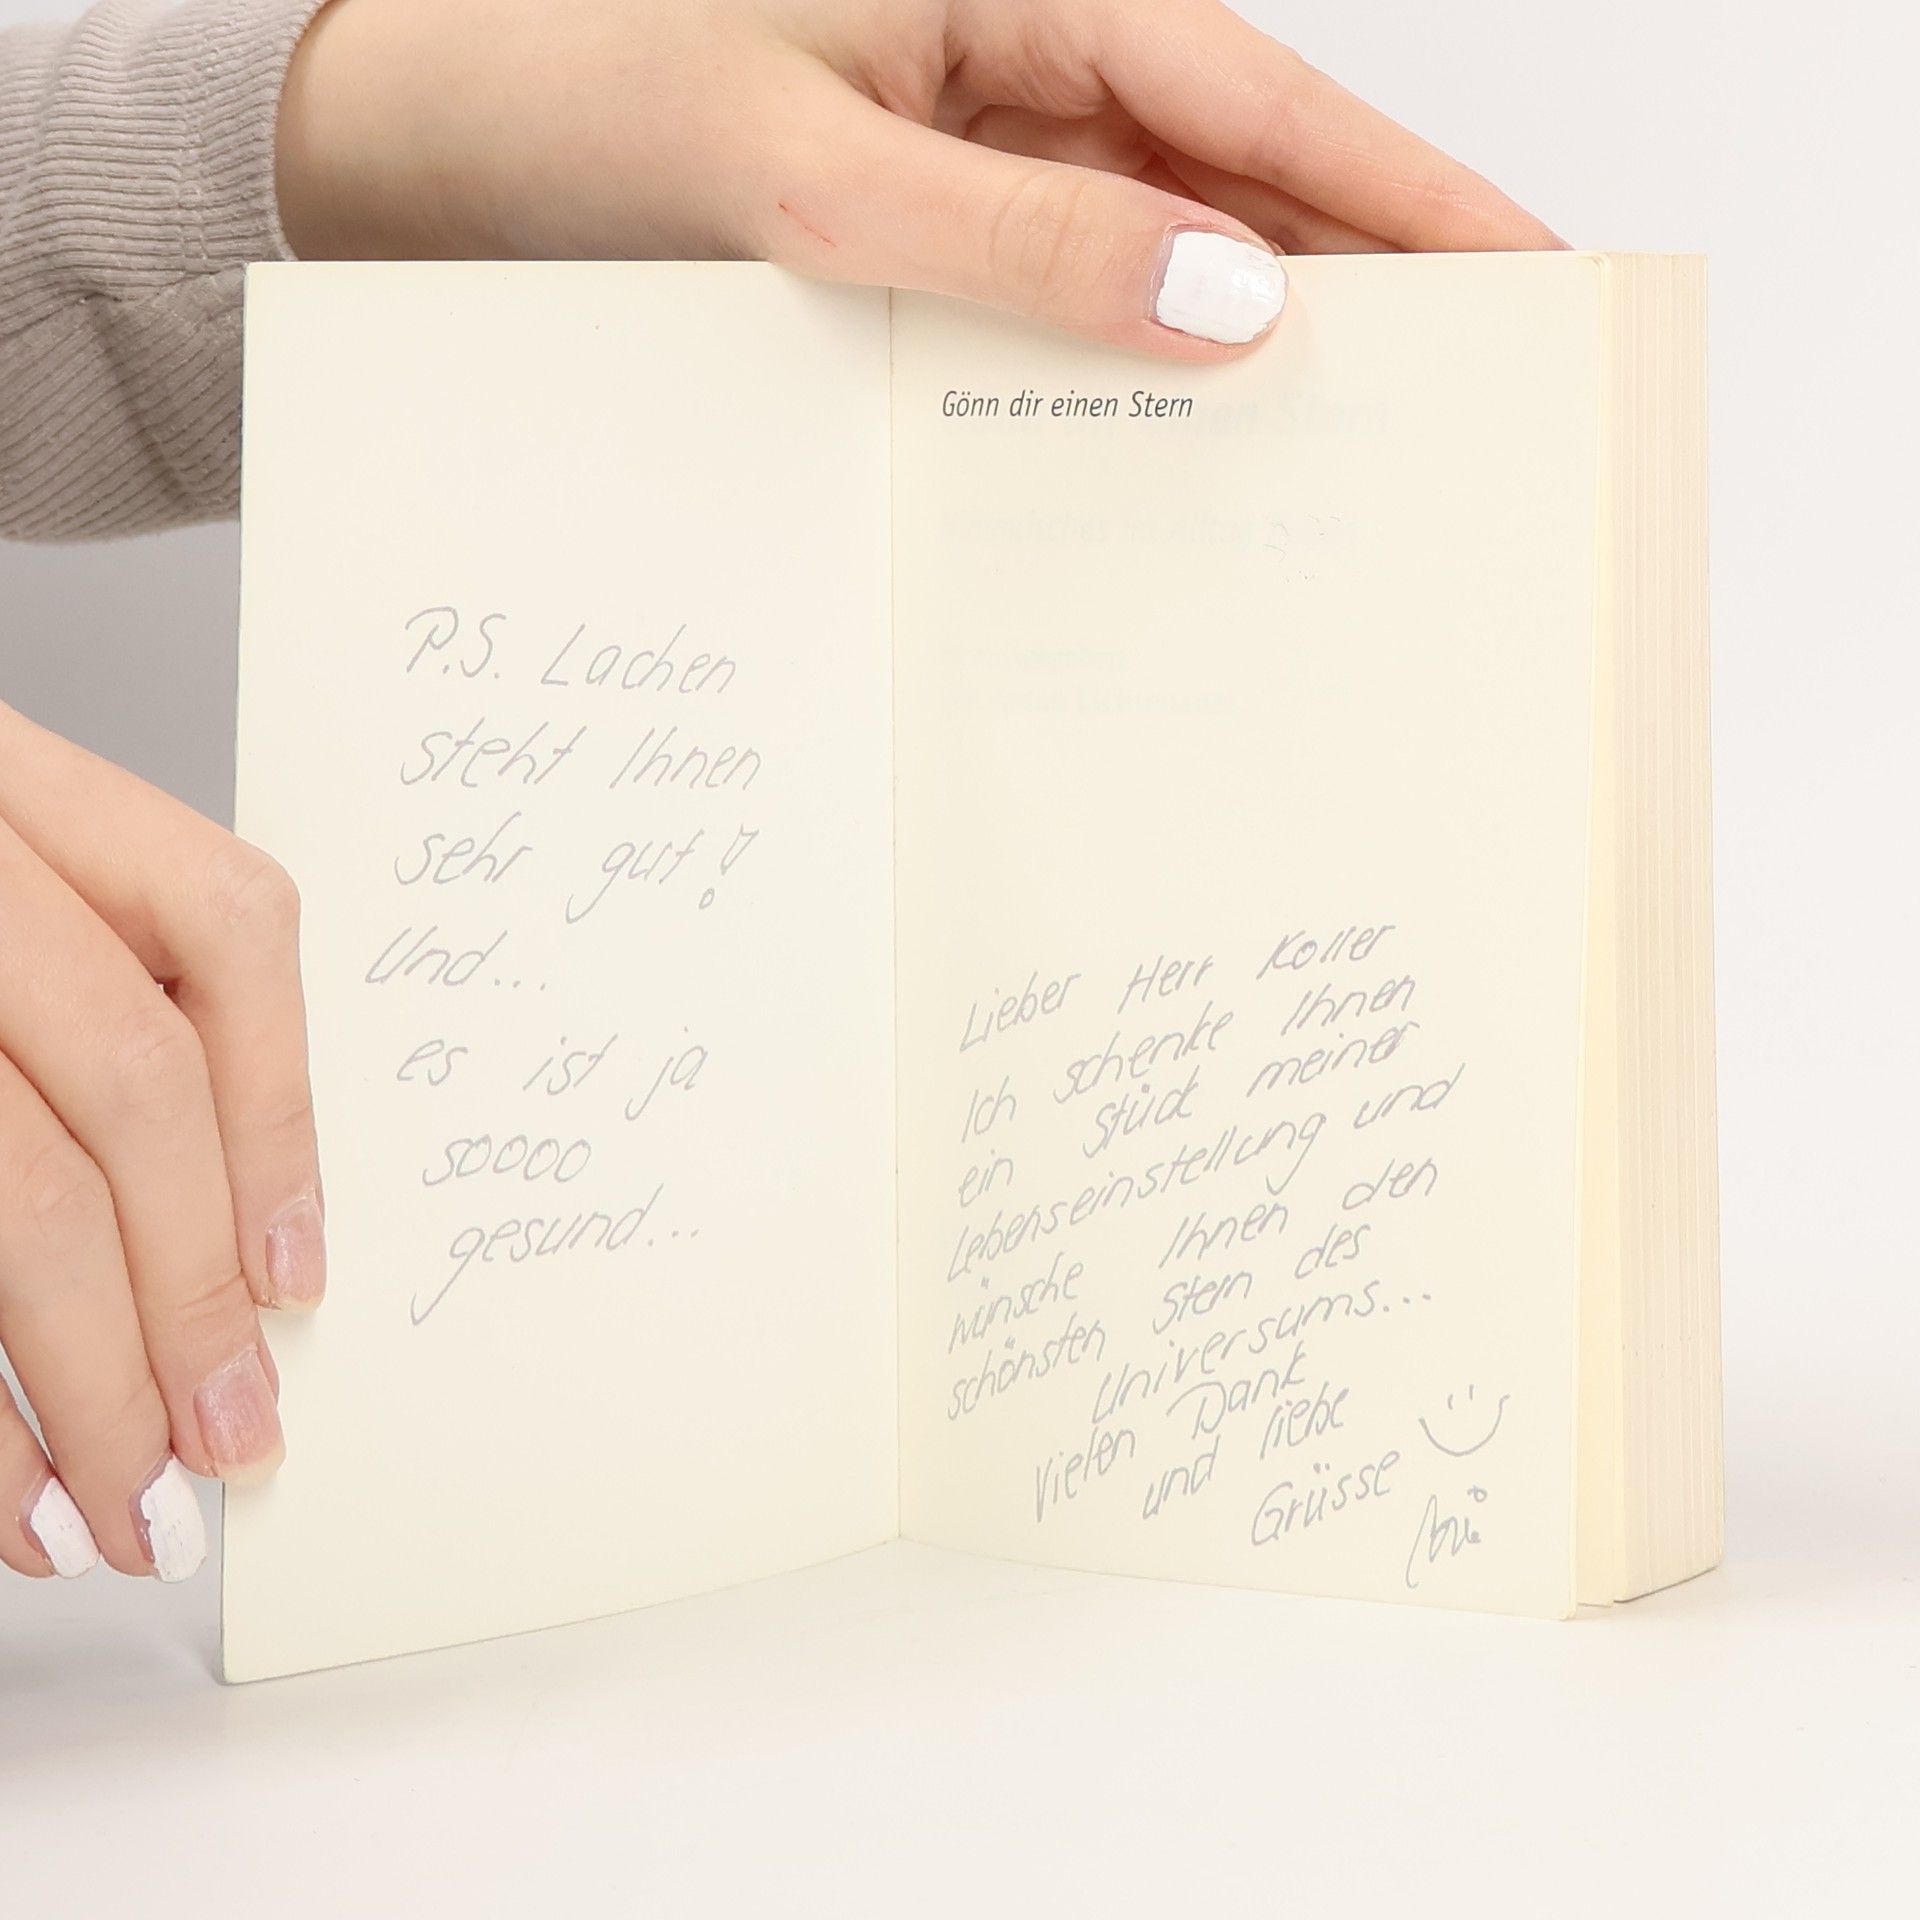 P.S. Lachen
steht Ihnen
sehr gut!
Und...
es ist ja
soooo
gesund...
Gönn dir einen Stern
Lieber Herr Koller
Ich schenke Ihnen
ein Stück meiner
Lebenseinstellung und
wünsche Ihnen den
schönsten Stern des
Universums...
Vielen Dank
und liebe
Grüsse